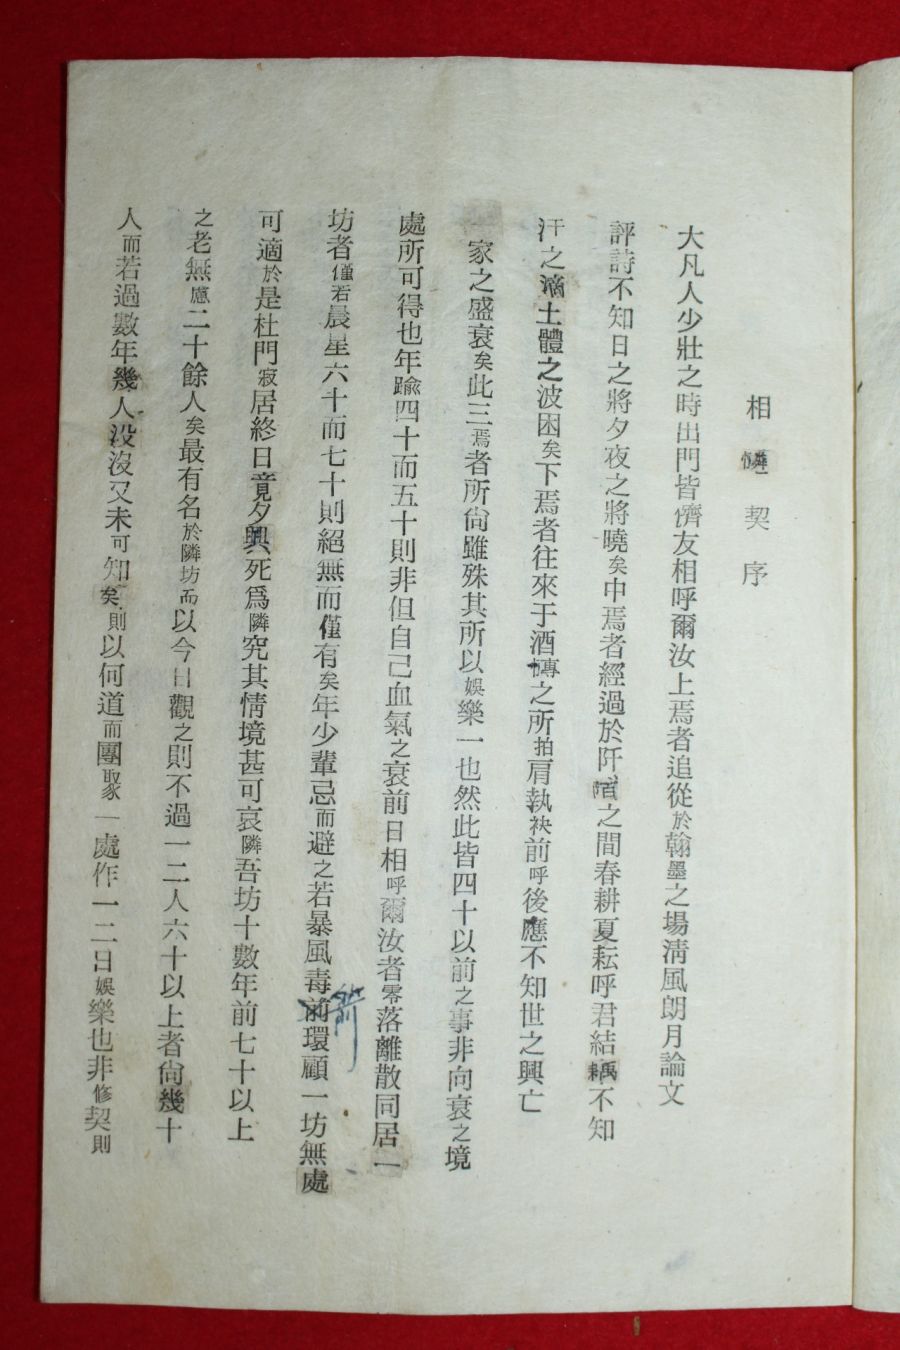 相憐契序
大凡人少壯之時出門皆儕友相呼爾汝上焉者追從於翰墨之場淸風朗月論文
評詩不知日之將夕夜之將曉矣中焉者經過於阡陌之間春耕夏耘呼君結耦不知
汗之滴土體之波困矣下焉者往來于酒博之所拍肩執袂前呼後應不知世之興亡
家之盛衰矣此三焉者所尙雖殊其所以娛樂一也然此皆四十以前之事非向衰之境
處所可得也年踰四十而五十則非但自己血氣之衰前日相呼爾汝者零落離散同居一
坊者僅若晨星六十而七十則絕無而僅有矣年少輩忌而避之若暴風毒前箭環顧一坊無處
可適於是杜門寂居終日竟夕興死爲隣究其情境甚可哀隣吾坊十數年前七十以上
之老無慮二十餘人矣最有名於隣坊而以今日觀之則不過一二人六十以上者尙幾十
人而若過數年幾人没沒又未可知矣則以何道而團聚一處作一二日娛樂也非修契則